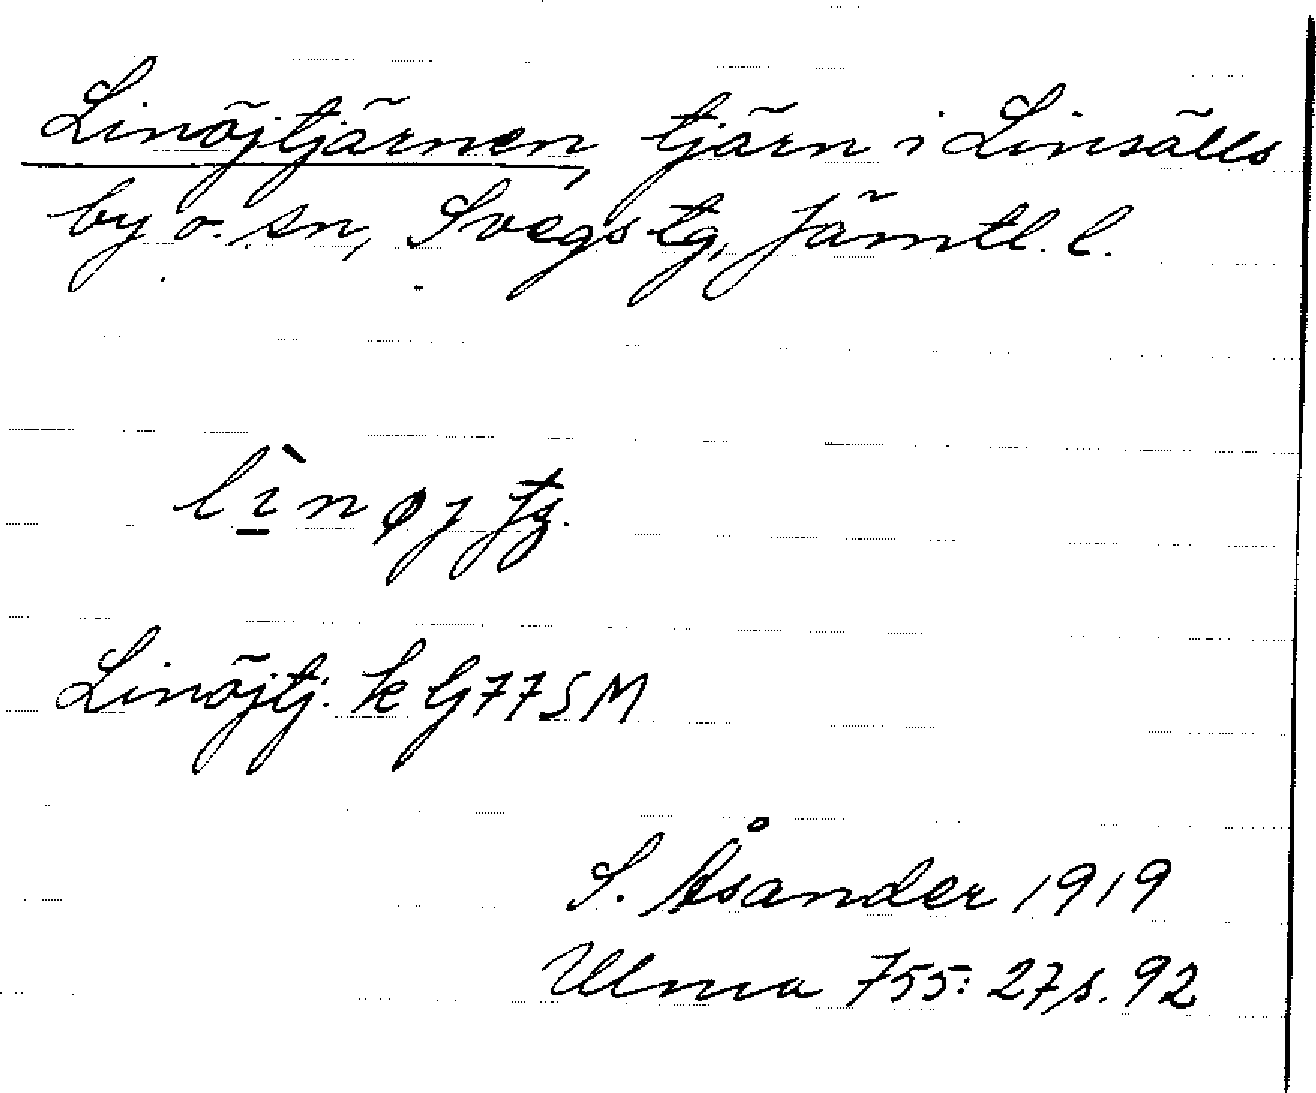 Linöjtjärnen, tjärn i Linsälls
by o. sn, Svegs tg, Jämtl. l.
lı̱̀nøj
Linöjtj. k G77SM
S. Åsander 1919
Ulma 755: 27 s. 92